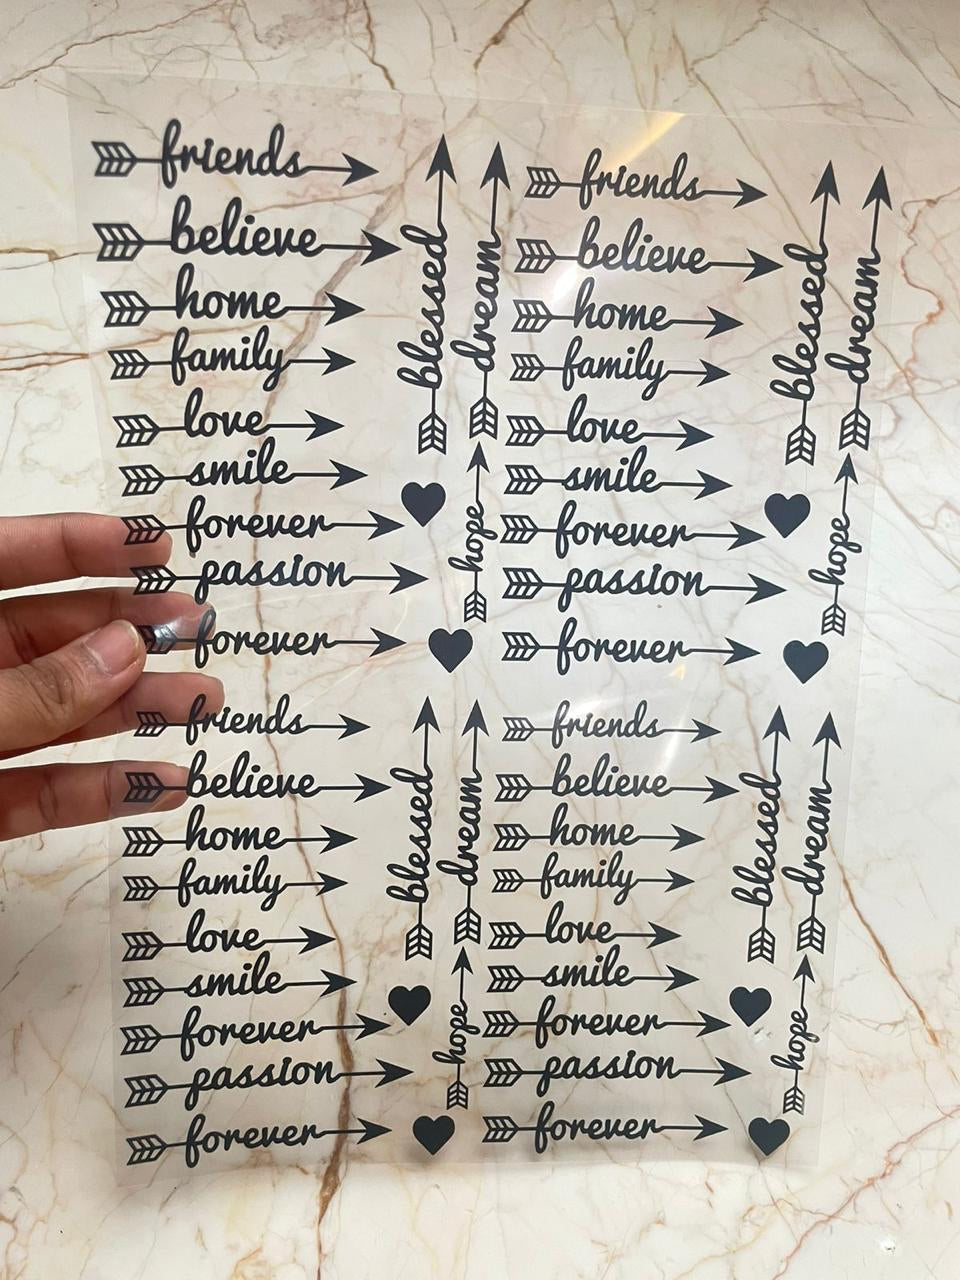 friends
believe
home
family
love
smile
forever
passion
forever
blessed
dream
hope
friends
believe
home
family
love
smile
forever
passion
forever
blessed
dream
hope
friends
believe
home
family
love
smile
forever
passion
forever
blessed
dream
hope
friends
believe
home
family
love
smile
forever
passion
forever
blessed
dream
hope